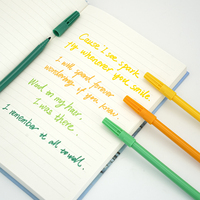 Cause I see spark
fly whenever you smile.
I will good forever
wondering if you know.
Wind in my hair,
I was there.
I remember it all too well.